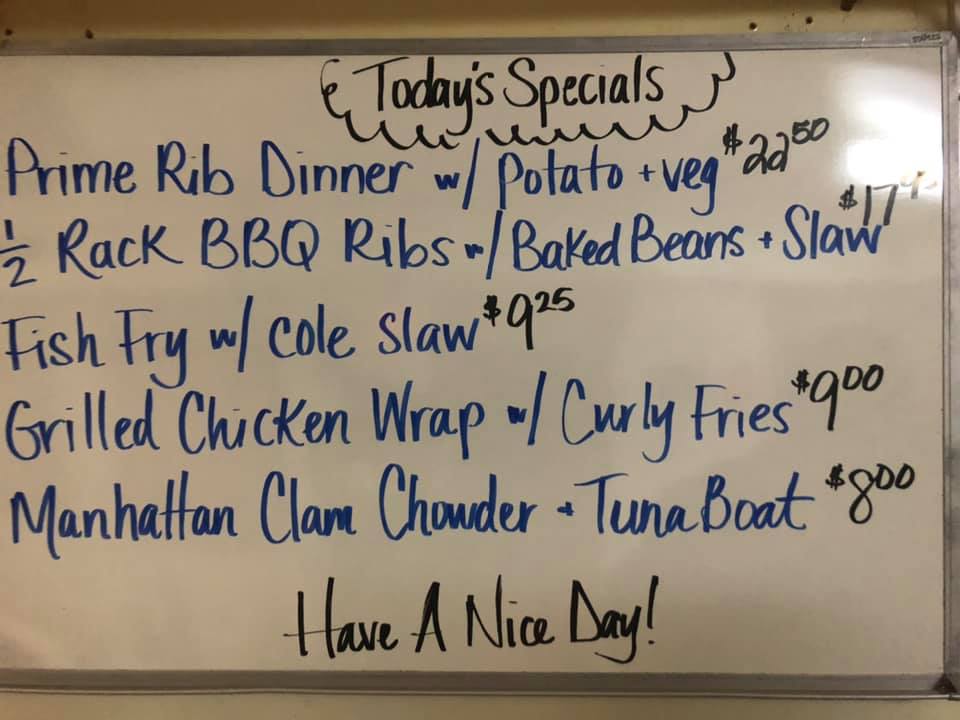 Today's Specials
Prime Rib Dinner w/ Potato + veg $22.50
1/2 Rack BBQ Ribs w/ Baked Beans + Slaw $17
Fish Fry w/ cole slaw $9.25
Grilled Chicken Wrap w/ Curly Fries $9.00
Manhattan Clam Chowder + Tuna Boat $8.00
Have A Nice Day!